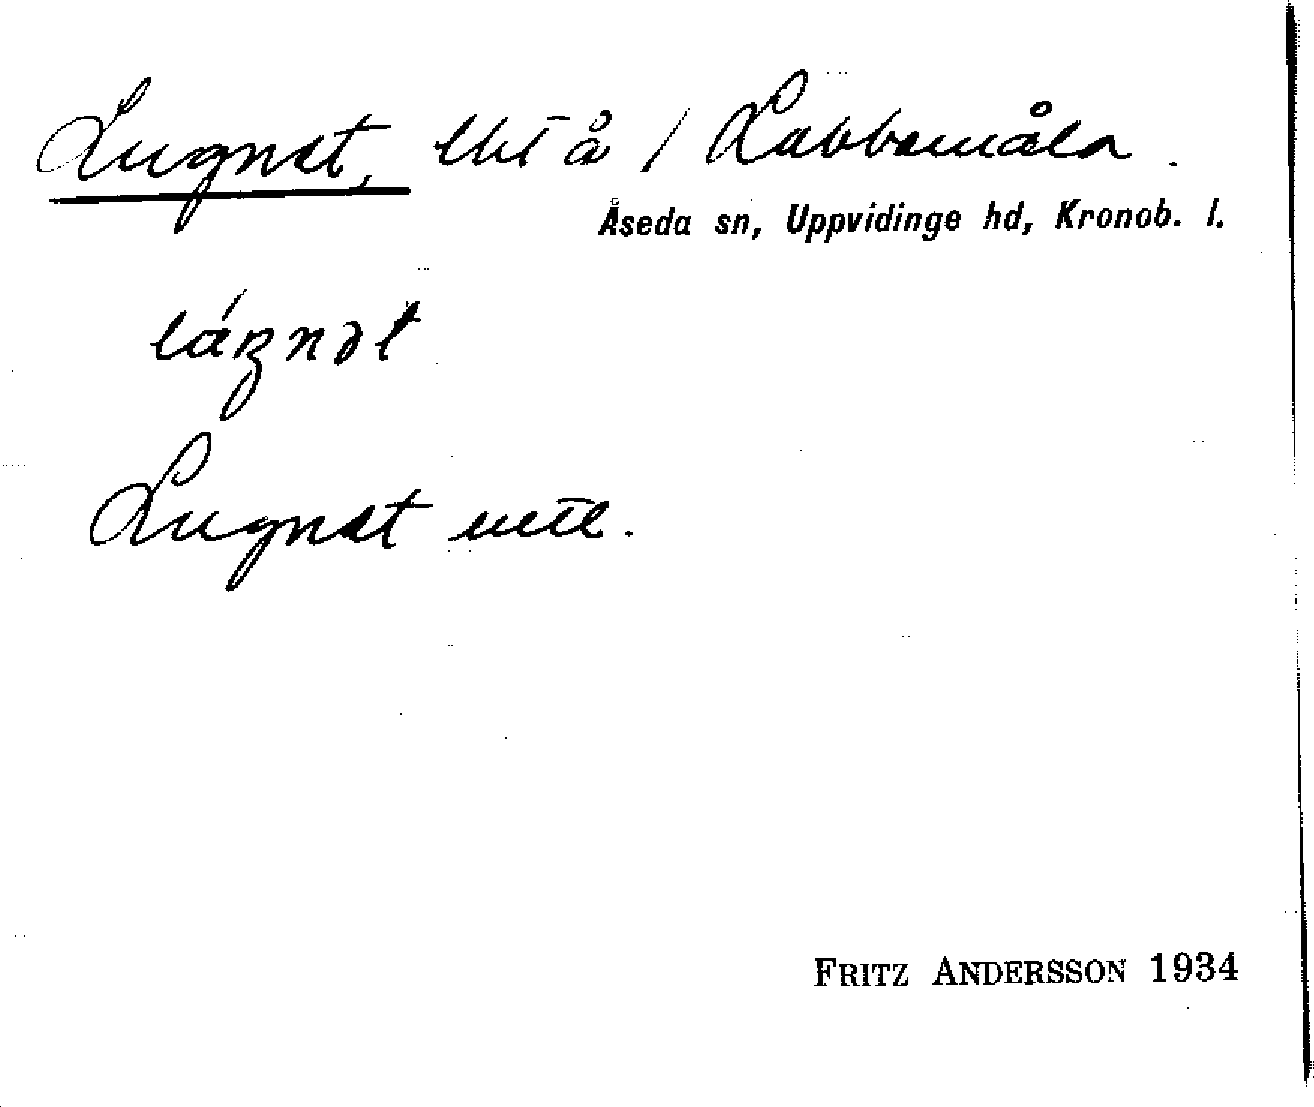 Lugnet, lht å / Labbemåla.
Åseda sn, Uppvidinge hd, Kronob. l.
Lugnet
FRITZ ANDERSSON 1934